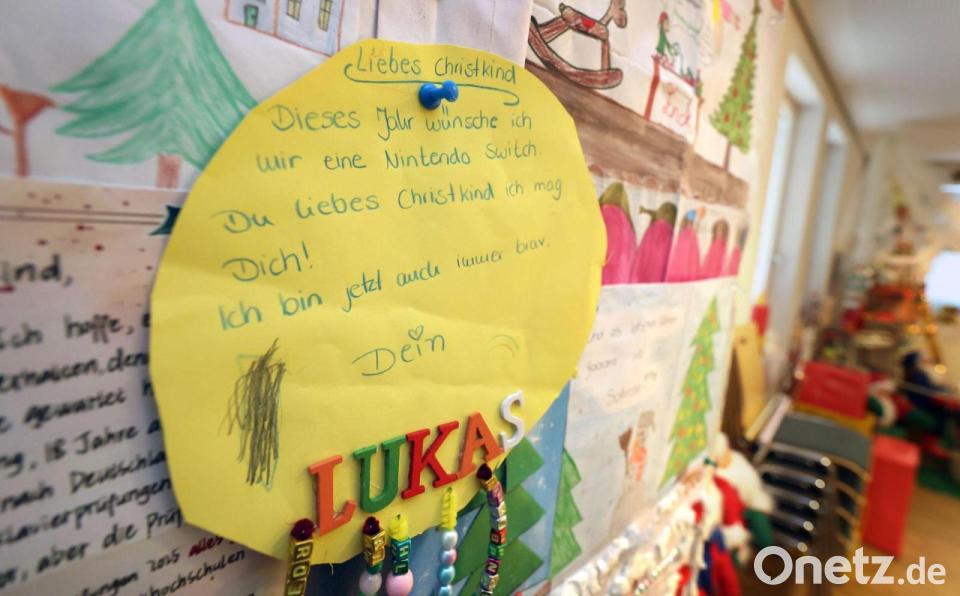 Liebes Christkind
Dieses Jahr wünsche ich
mir eine Nintendo Switch.
Du liebes Christkind ich mag
Dich!
Ich bin jetzt auch immer brav.
Dein
LUKAS
ind,
ich hoffe,
gewartet
18 Jahre
nach Deutschla
lavierprüfungen
aber die Prüf
2025 alles
hochschulen
Onetz.de